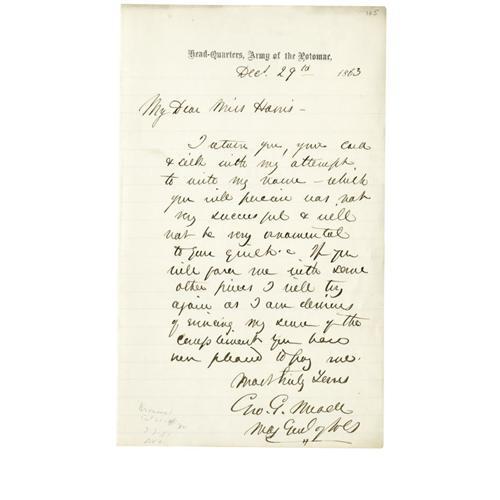 165
Head-Quarters, Army of the Potomac,
Decr. 29th 1863
My Dear Miss Harris -
I return you, your card
& silk with my attempt
to write my name - which
you will perceive was not
very successful & will
not be very ornamental
to your quilt. If you
will favor me with some
other pieces I will try
again as I am desirous
of evincing my sense of the
compliment you have
been pleased to pay me.
Most truly Yours
Geo. G. Meade
Maj Genl of Vols